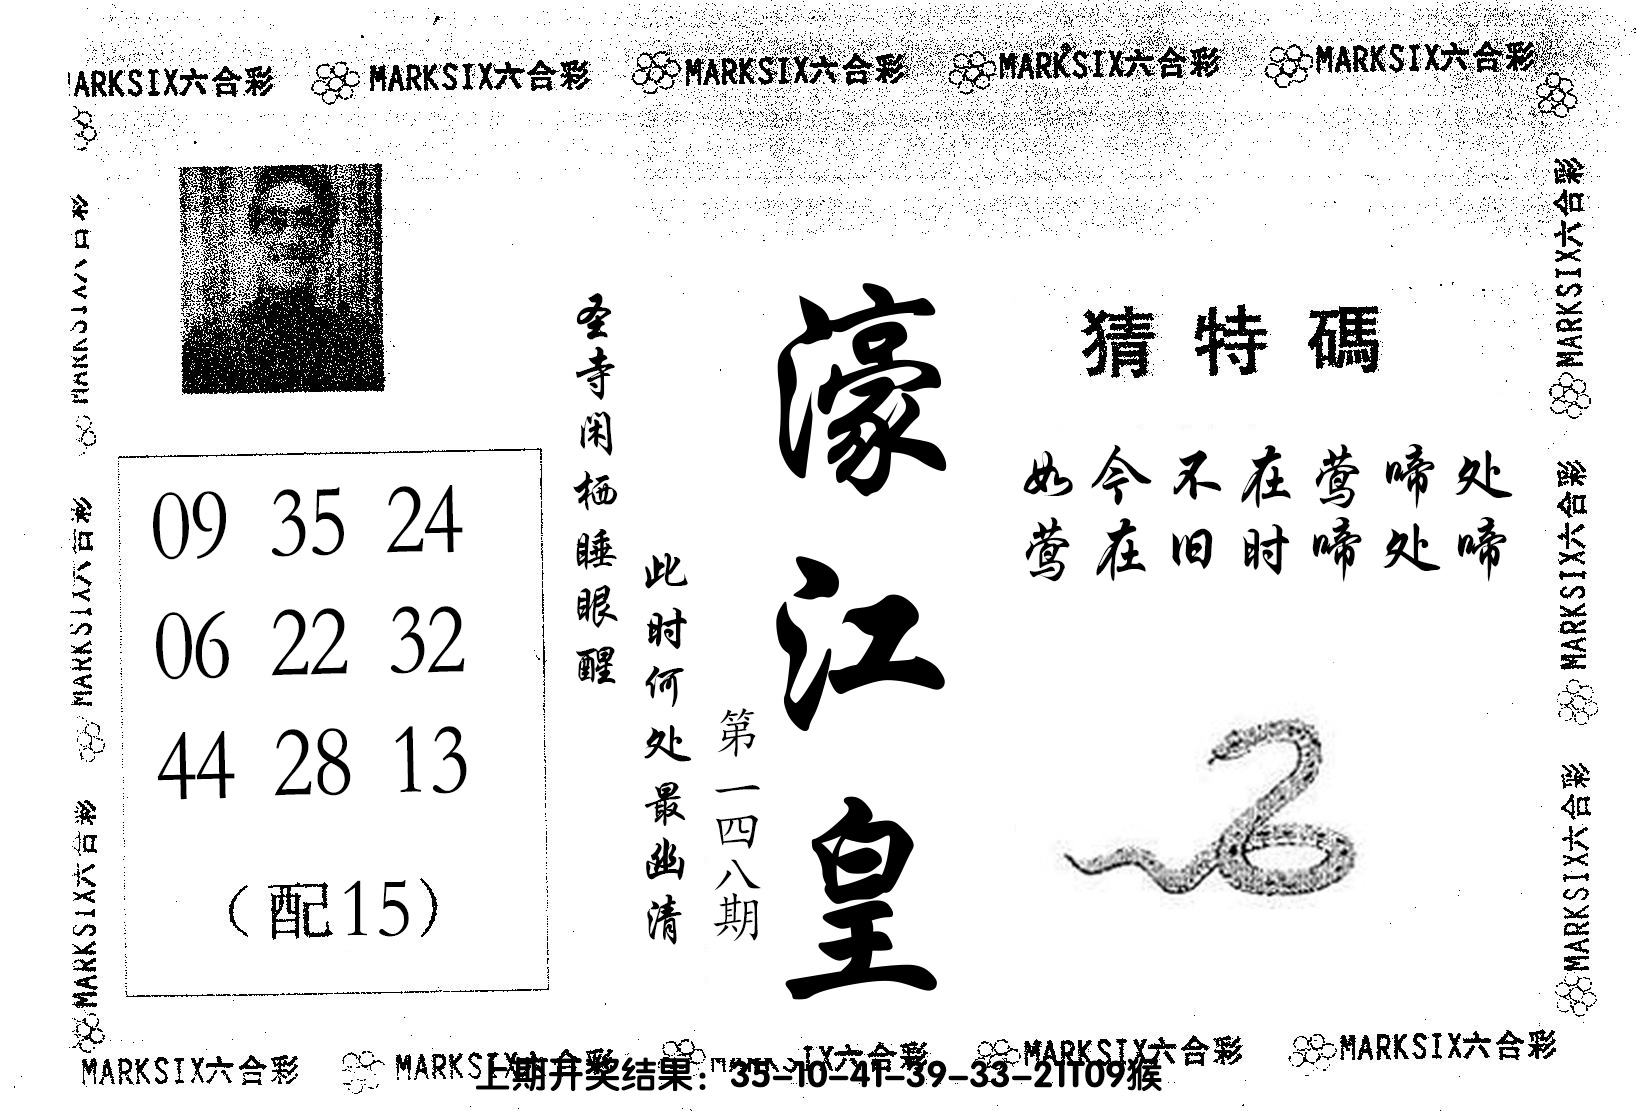 MARKSIX六合彩 MARKSIX六合彩 MARKSIX六合彩 MARKSIX六合彩 MARKSIX六合彩
MARKSIX六合彩
MARKSIX六合彩
MARKSIX六合彩
09 35 24
06 22 32
44 28 13
（配15）
圣寺闲栖睡眼醒
此时何处最幽清
第一四八期
濠江皇
猜特碼
如今不在莺啼处
莺在旧时啼处啼
MARKSIX六合彩
MARKSIX六合彩
MARKSIX六合彩
MARKSIX六合彩 MARKSIX六合彩 六合彩 MARKSIX六合彩 MARKSIX六合彩
上期开奖结果：35-10-41-39-33-21T09猴